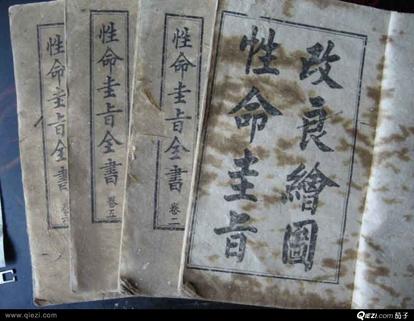 改良繪圖
性命圭旨
性命圭旨全書
卷二
性命圭旨全書
卷五
性命圭旨全書
www.qiezi.com
QIEZI.com 茄子